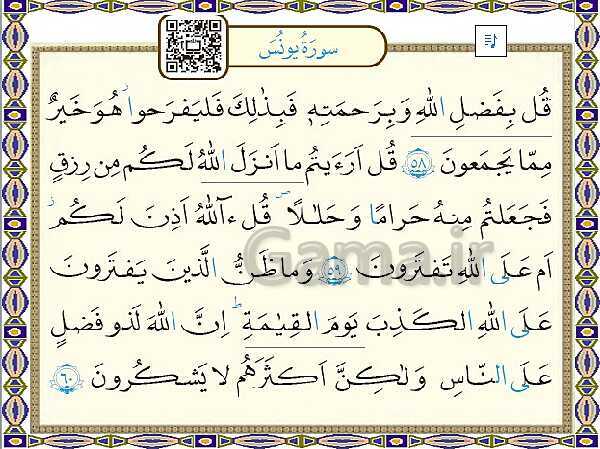 سورَةُ يونُسَ
قُل بِفَضلِ اللهِ وَ بِرَحمَتِهٖ فَبِذٰلِكَ فَليَفرَحوا ۭ هُوَ خَيرٌ
مِمّا يَجمَعونَ ﴿٥٨﴾ قُل اَرَءَيتُم ما اَنزَلَ اللهُ لَكُم مِن رِزقٍ
فَجَعَلتُم مِنهُ حَرامًا وَ حَلٰلًا ۖ قُل ءآللهُ اَذِنَ لَكُم
اَم عَلَى اللهِ تَفتَرونَ ﴿٥٩﴾ وَ ما ظَنُّ الَّذينَ يَفتَرونَ
عَلَى اللهِ الكَذِبَ يَومَ القِيٰمَةِ ؕ اِنَّ اللهَ لَذو فَضلٍ
عَلَى النّاسِ وَلٰكِنَّ اَكثَرَهُم لا يَشكُرونَ ﴿٦٠﴾
Gama.ir